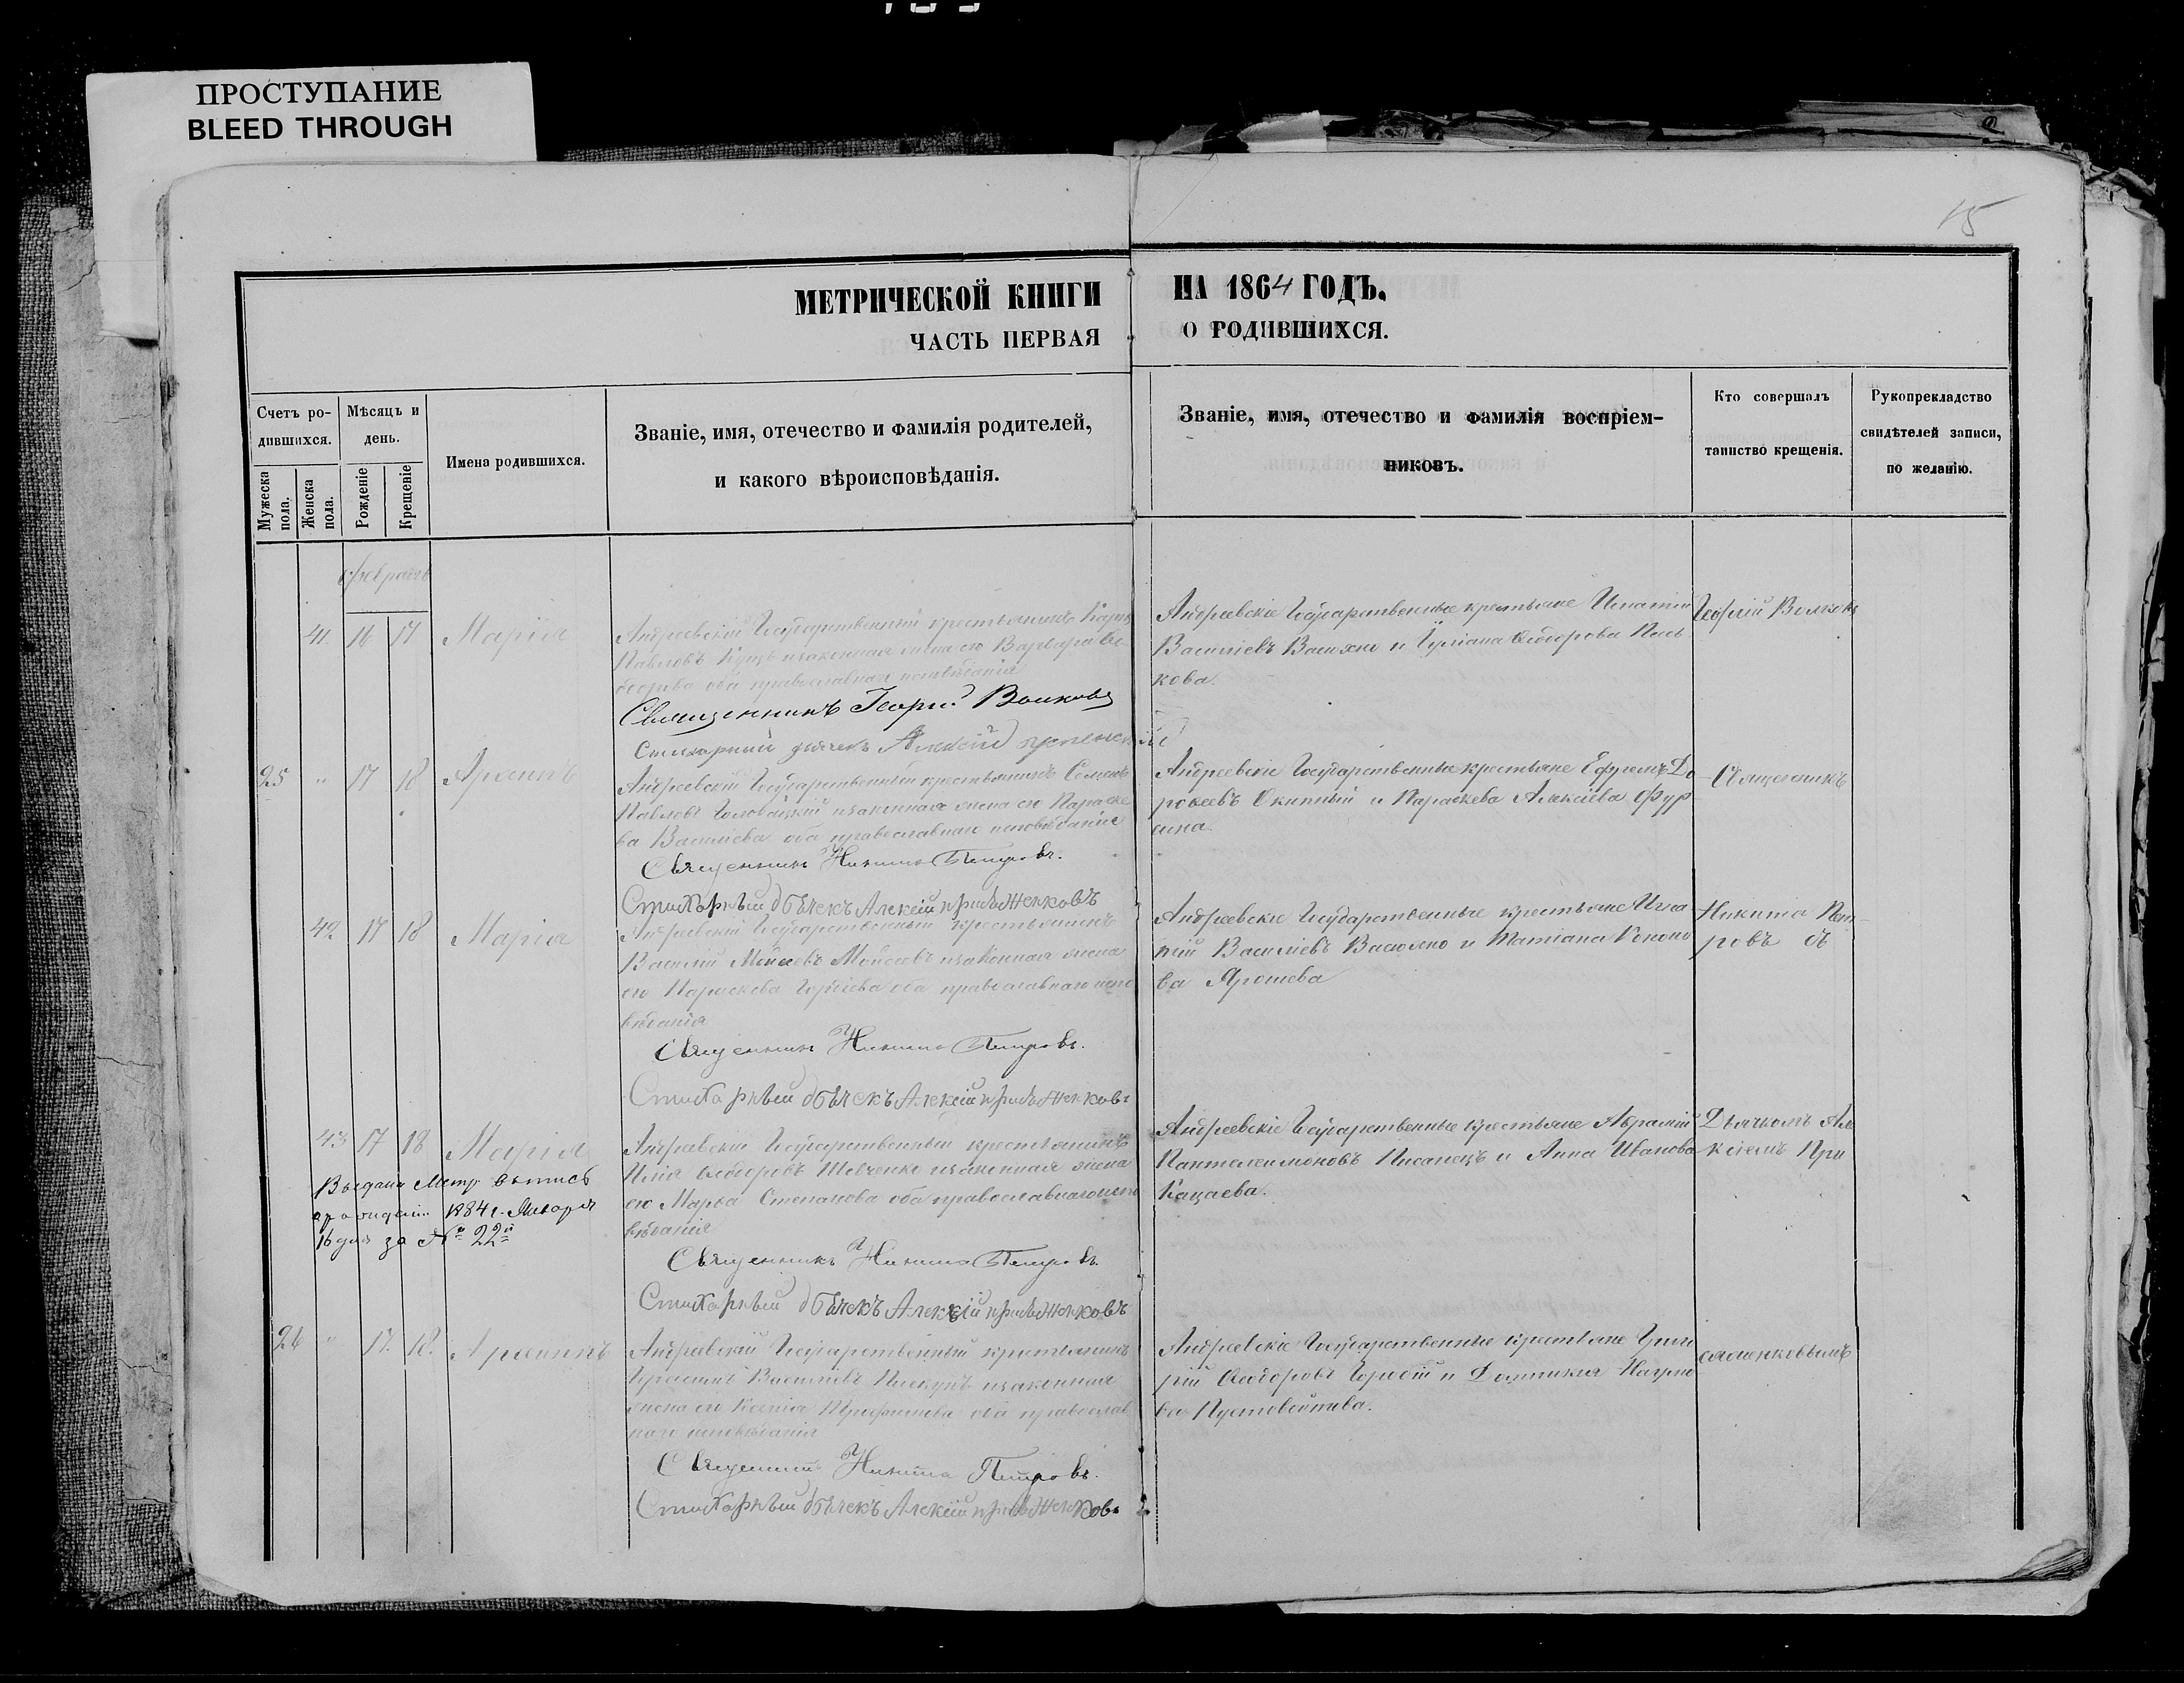 ПРОСТУПАНИЕ
BLEED THROUGH
15
МЕТРИЧЕСКОЙ КНИГИ НА 1864 ГОДЪ.
ЧАСТЬ ПЕРВАЯ О РОДИВШИХСЯ.
Счетъ ро-
дившихся.
Мужеска пола.
Женска пола.
Мѣсяцъ и
день.
Рожденіе
Крещеніе
Имена родившихся.
Званіе, имя, отечество и фамилія родителей,
и какого вѣроисповѣданія.
Званіе, имя, отечество и фамилія воспріем-
никовъ.
Кто совершалъ
таинство крещенія.
Рукоприкладство
свидѣтелей записи,
по желанію.
Февраль
41. 16 17 Марія
Андреевскій Государственный крестьянинъ
Павловъ изаконная жена его Варвара Ѳе-
дорова оба православнаго исповѣданія
Священникъ Георгій Волковъ
Стихарный дьячекъ Алексій
Андреевскіе Государственные крестьяне Игнатій
Василіевъ и Ѳеодорова
кова.
Георгій Волковъ
25 " 17 18
Андреевскій Государственный крестьянинъ Семенъ
Павловъ изаконная жена его Параске
ва Василіева оба православнаго исповѣданія
Священникъ Никита Петровъ.
Стихарный дьячекъ Алексій
Андреевскіе Государственные крестьяне Ефремъ До
роѳеевъ и Параскева Алексіева
Священникъ
42 17 18 Марія
Андреевскій Государственный крестьянинъ
Василій Моисеевъ изаконная жена
его Параскева оба православнаго испо
вѣданія
Священникъ Никита Петровъ.
Стихарный дьячекъ Алексій
Андреевскіе Государственные крестьяне Игна
тій Василіевъ и Татіана Кононо
ва Ярошева
Никита Пет-
ровъ съ
43 17 18 Марія
Выдана Метр. выпись
о рожденіи 1884 г. Января
16 дня за № 22
Андреевскій Государственный крестьянинъ
Илія Ѳеодоровъ Шевченко изаконная жена
его Марѳа Степанова оба православнаго испо
вѣданія
Священникъ Никита Петровъ.
Стихарный дьячекъ Алексій
Андреевскіе Государственные крестьяне Авраамій
Пантелеимоновъ Писанецъ и Анна Иванова
Кацаева.
Дьячкомъ Але
ксіемъ При
26 " 17. 18.
Андреевскій Государственный крестьянинъ
Василіевъ Пискунъ изаконная
жена его Ксенія Трофимова оба православ
наго исповѣданія
Священникъ Никита Петровъ.
Стихарный дьячекъ Алексій
Андреевскіе Государственные крестьяне Григо
рій Ѳеодоровъ и Домникія Наумо
ва Пустовойтова.